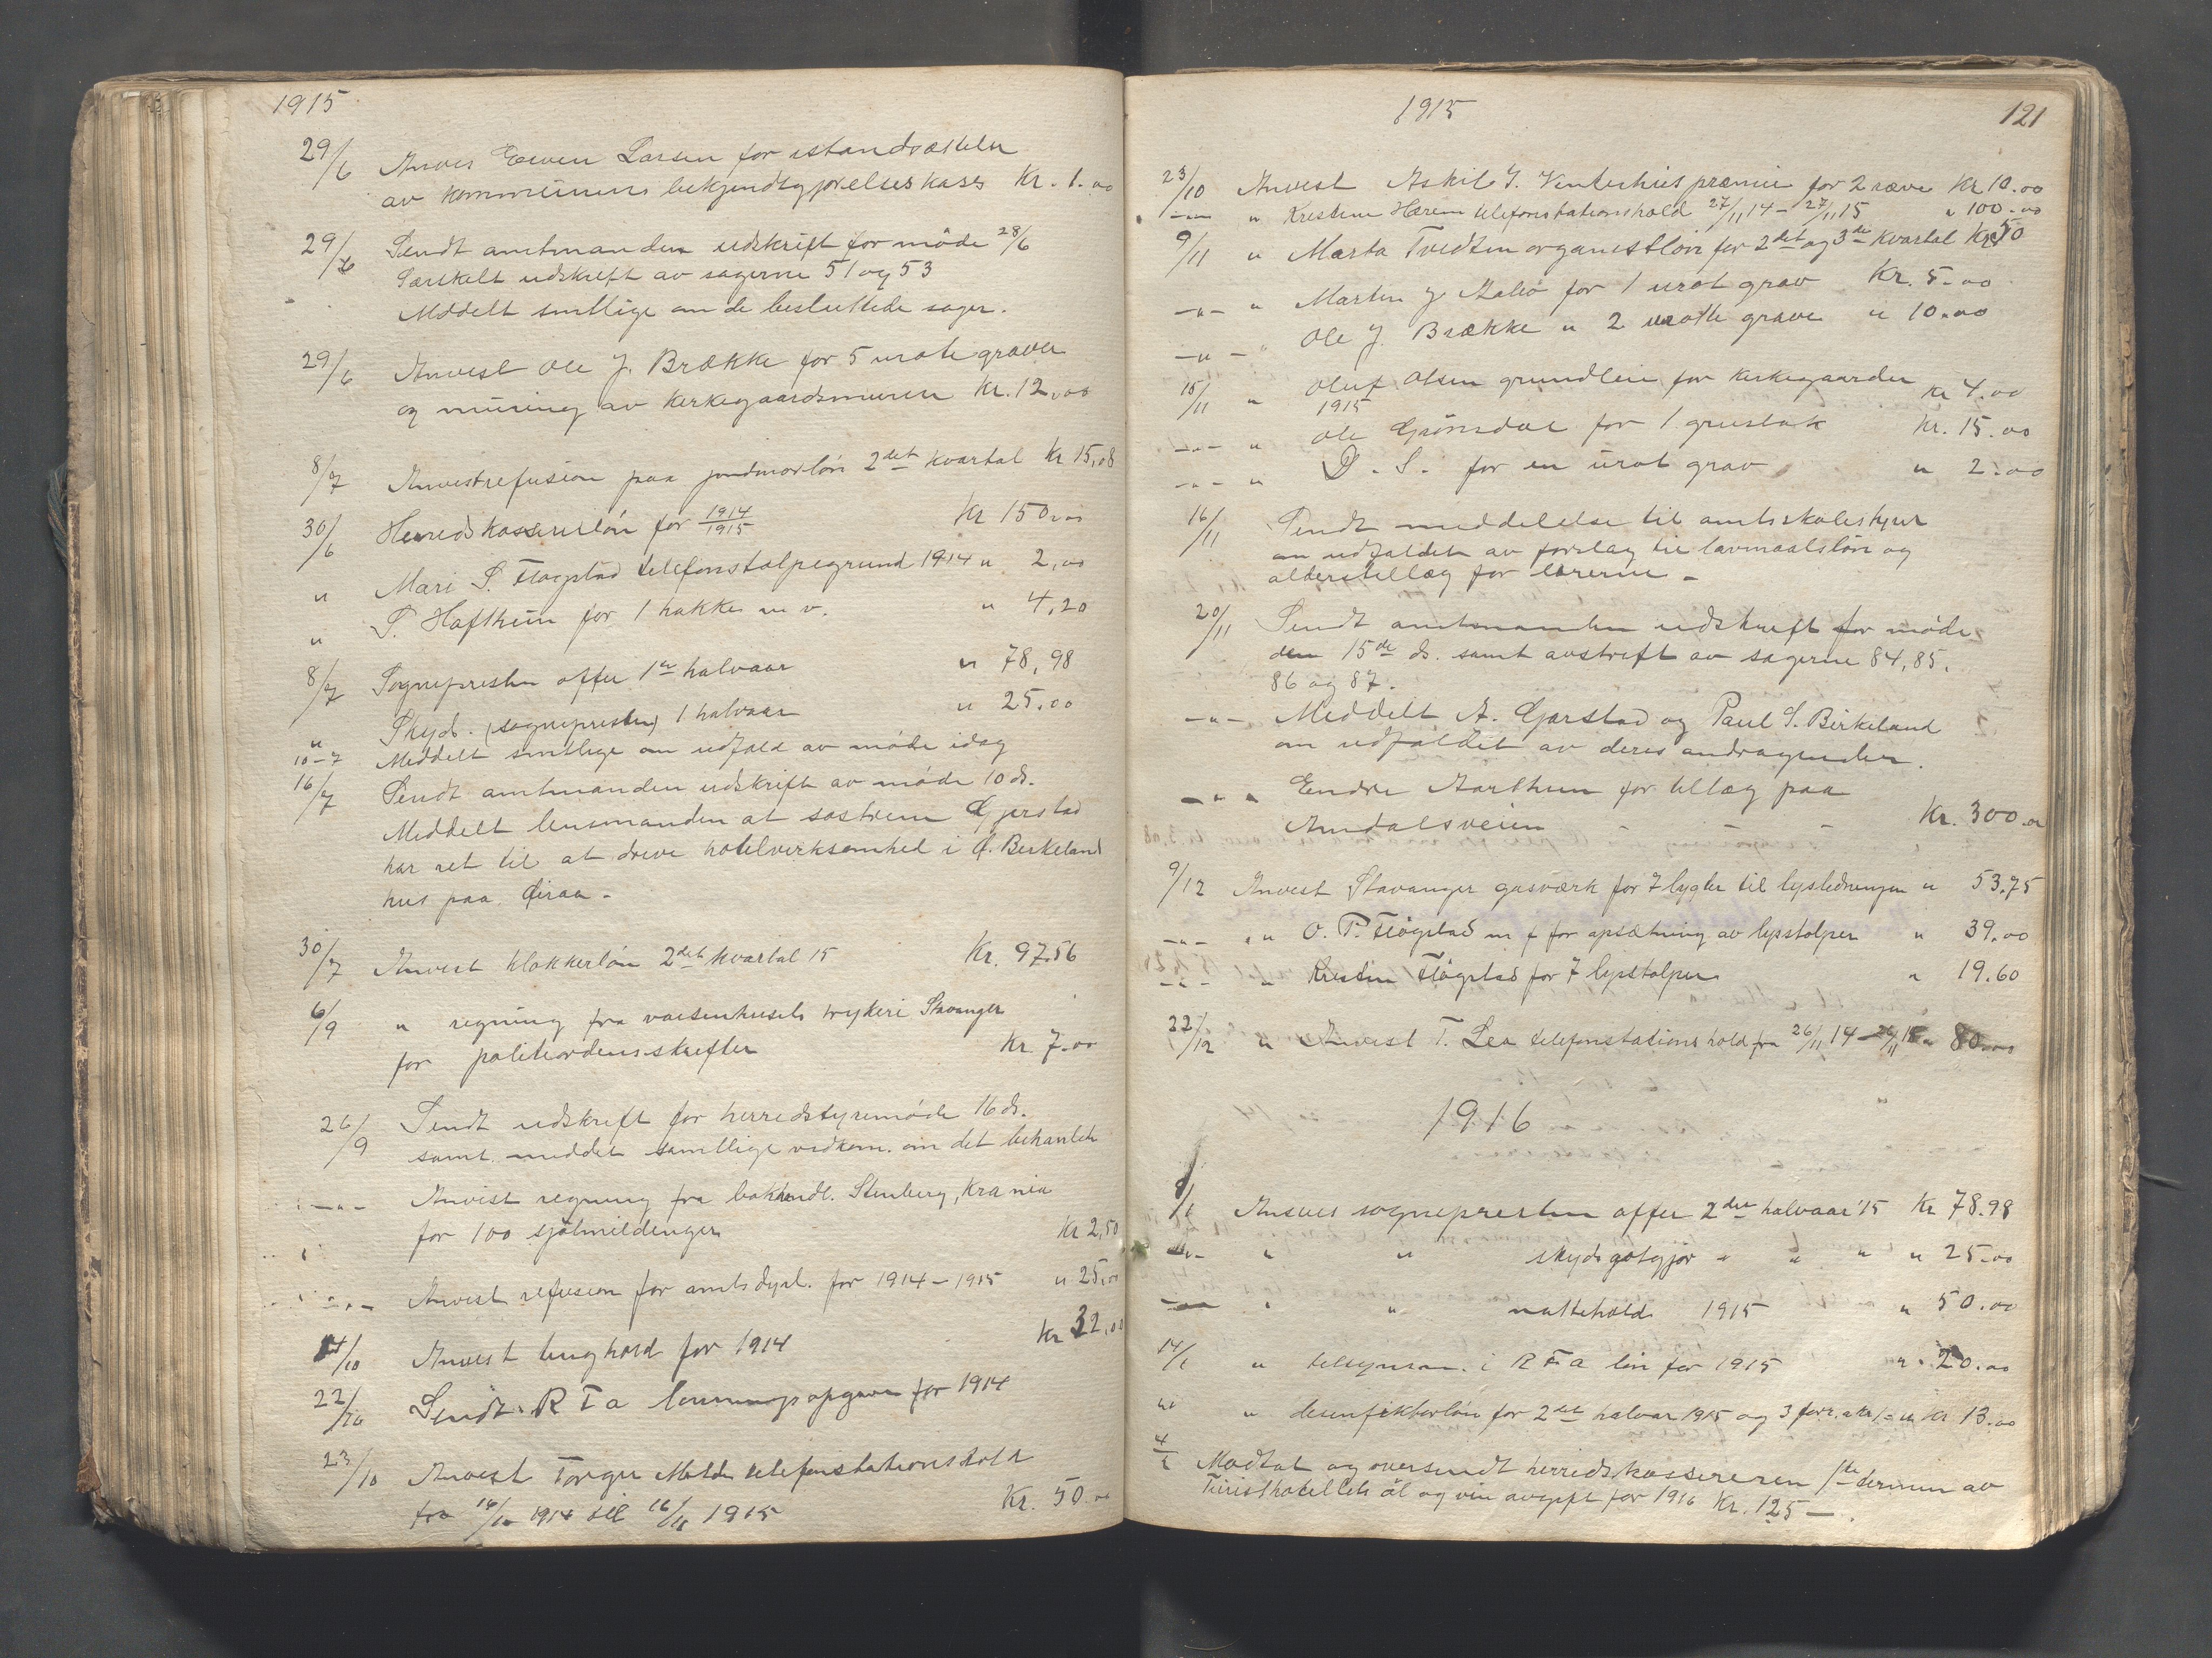 1915
29/6 Anvis Erven Larsen for istandsættelse
av kommunens bekjendtgjørelseskasse Kr. 1.00
29/6 Sendt amtmanden udskrift for møde 28/6
Særskelt udskrift av sagerne 51 og 53
Meddelt samtlige om de besluttede sager.
29/6 Anvist Ole J. Brække for 5 urote graver
og muring av kirkegaardsmuren Kr. 12.00
8/7 Anvist refusion paa jordmorløn 2det kvartal Kr 15,08
30/6 Herredskassererløn for 1914/1915 Kr 150.00
" Mari S. Fløgstad telefonstolpegrund 1914 " 2,00
" S. Hafthun for 1 hakke m v. " 4,20
8/7 Sognepresten offer 1ste halvaar " 78,98
" Skyds. (sognepresten) 1 halvaar " 25.00
10-7 Meddelt samtlige om udfald av møde idag
16/7 Sendt amtmanden udskrift av møde 10 ds.
Meddelt lensmanden at søstrene Gjerstad
har ret til at drive hotelvirksomhed i Ø. Birkeland
hus paa Øiraa -
30/7 Anvist klokkerløn 2det kvartal 15 Kr. 97.56
6/9 " regning fra vaisenhusets trykeri Stavanger
for politiordensskrifter Kr 7.00
26/9 Sendt udskrift for herredstyremøde 16 ds.
samt meddelt samtlige vedkom. om det behandlede
-"- Anvist regning fra bokhandl. Stenberg, Krania
for 100 sjølmeldinger Kr 2,50
-"- Anvist refusion for amtsdyrl. for 1914-1915 " 25.00
14/10 Anvist tinghold for 1914 Kr 32,00
22/10 Sendt R T a lønningsopgave for 1914
23/10 Anvist Torger Molde telefonstationshold
fra 16/11 1914 til 16/11 1915 Kr. 50.00
1915 121
23/10 Anvist Askil J. Vinterhus præmie for 2 ræve Kr 10.00
-"- " Kristine Hærem telefonstationshold 27/11 14 - 27/11 15 " 100.00
9/11 " Marta Tveiten organistløn for 2det og 3de kvartal Kr 50
-"- " Marten J Aabø for 1 urot grav Kr. 5.00
-"- " Ole J. Brække " 2 urotte grave " 10.00
15/11 " Oluf Olsen grundleie for kirkegaarden
1915 Kr 4.00
-"- " Ole Grønsdal for 1 grustak Kr. 15.00
-"- " D. S. for en urot grav " 2.00
16/11 Sendt meddelelse til amtsskolestyret
om udfaldet av forslag til lavmaalsløn og
alderstillæg for lærerne -
20/11 Sendt amtmanden udskrift for møde
den 15de ds. samt avskrift av sagerne 84, 85,
86 og 87.
-"- Meddelt A. Gjerstad og Paul S. Birkeland
om udfaldet av deres andragender.
-"- Endre Aarthun for tillæg paa
Amdalsveien - - Kr. 300.00
9/12 Anvist Stavanger gasværk for 7 lygter til lysledningen " 53,75
-"- " O. P. Fløgstad m f for opsætning av lysstolper " 39.00
-"- " Kristen Fløgstad for 7 lysstolper " 19.60
22/12 " Anvist T. Lea telefonstationshold fra 26/11 14 - 26/11 15 " 80.00
1916
8/1 Anvis sognepresten offer 2det halvaar '15 Kr 78.98
-"- " " skydsgotgjør " " " " 25.00
-"- " " nattehold 1915 " 50.00
14/1 " tilsynsm. i R T a løn for 1915 " 20.00
" " desinfektørløn for 2det halvaar 1915 og 3 forr. a kr 1 = " Kr 13.00
4/2 Modtat og oversendt herredskassereren 1ste termin av
Turisthotellets øl og vin avgift for 1916 Kr. 125 -.